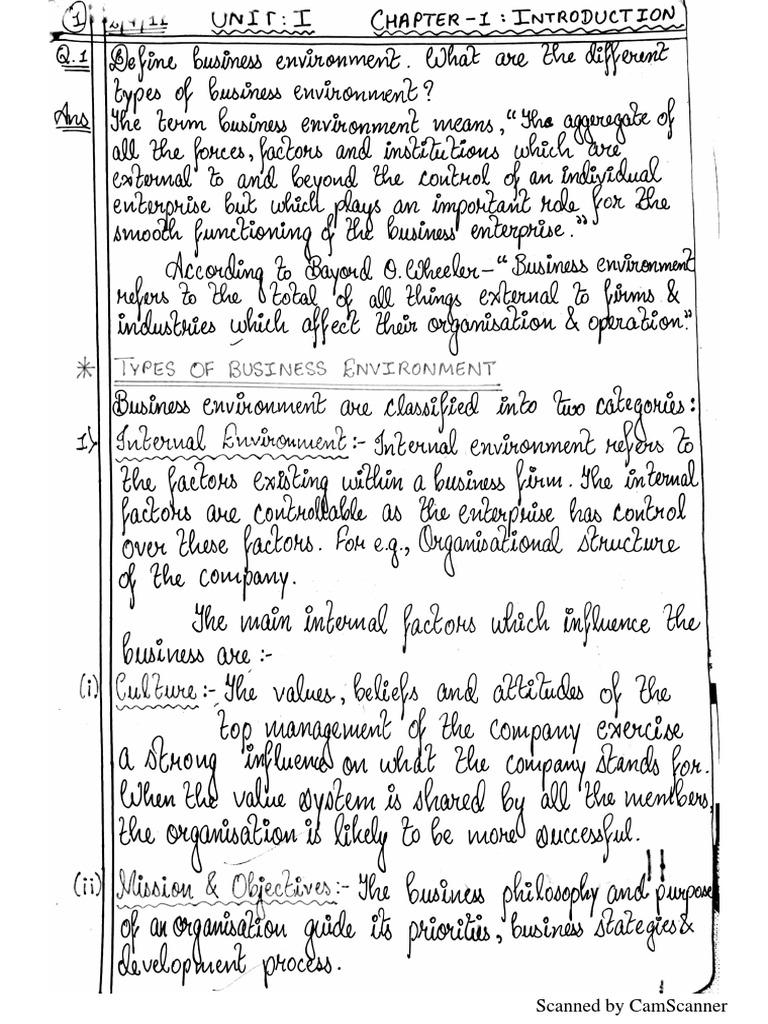 1 UNIT: I CHAPTER-1: INTRODUCTION
Q.1 Define business environment. What are the different
types of business environment?
Ans The term business environment means, "The aggregate of
all the forces, factors and institutions which are
external to and beyond the control of an individual
enterprise but which plays an important role for the
smooth functioning of the business enterprise."
According to Bayord O. Wheeler-"Business environment
refers to the total of all things external to firms &
industries which affect their organisation & operation."
* TYPES OF BUSINESS ENVIRONMENT
Business environment are classified into two categories:
1) Internal Environment:- Internal environment refers to
the factors existing within a business firm. The internal
factors are controllable as the enterprise has control
over these factors. For e.g., Organisational structure
of the company.
The main internal factors which influence the
business are:-
(i) Culture:- The values, beliefs and attitudes of the
top management of the company exercise
a strong influence on what the company stands for.
When the value system is shared by all the members,
the organisation is likely to be more successful.
(ii) Mission & Objectives:- The business philosophy and purpose
of an organisation guide its priorities, business stategies &
development process.
Scanned by CamScanner